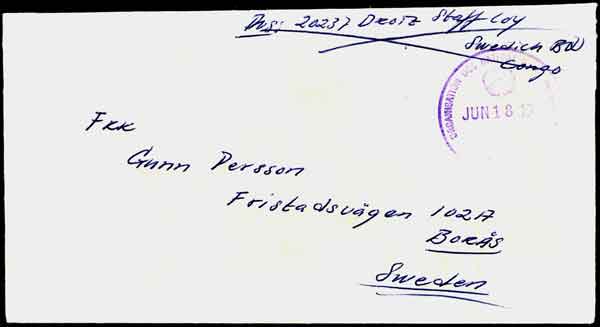 Avs: 20237 Droiz Staff Coy
Swedish BN
Congo
ORGANISATION DES
JUN 18
Frk
Gunn Persson
Fristadsvägen 102A
BORÅS
Sweden